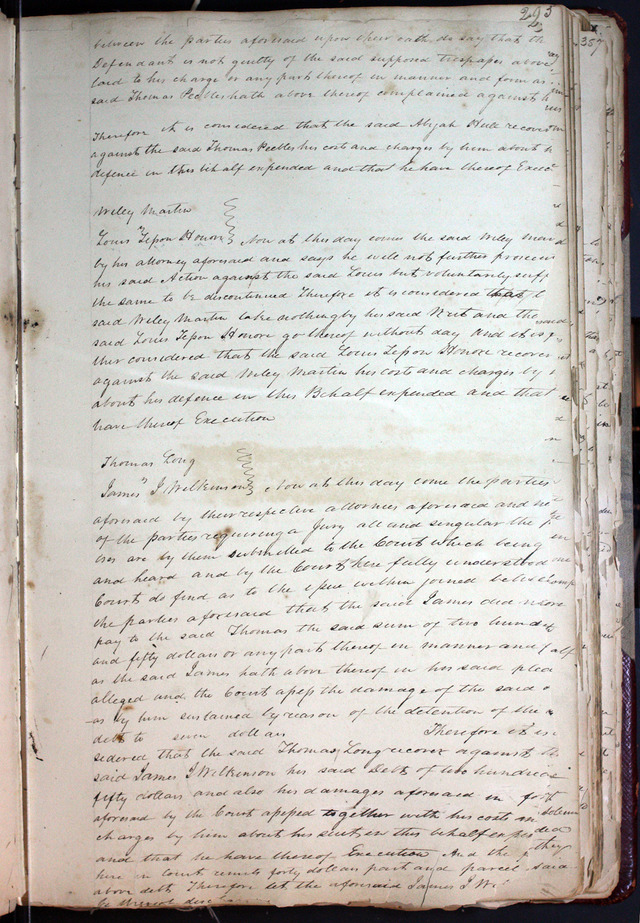 293
between the parties aforesaid upon their oath do say that th
Defendant is not guilty of the said supposed trespapes above
laid to his charge or any part thereof in manner and form as
said Thomas Peebles hath above thereof complained against
Therefore it is considered that the said Abijah Hull recover
against the said Thomas Peebles his costs and charges by him about
defence in this behalf expended and that he have thereof Exec
Wiley Martin
Louis Lepon Honore Now at this day comes the said Wiley
by his attorney aforesaid and says he will not further
his said Action against the said Louis but voluntarily suff
the same to be discontinued Therefore it is considered that
said Wiley Martin take nothing by his said Writ and the
said Louis Lepon Honore go thereof without day And it is
ther considered that the said Louis Lepon Honore recover
against the said Wiley Martin his costs and charges by
about his defence in this Behalf expended and that
have thereof Execution
Thomas Long
James J Wilkinson Now at this day come the parties
aforesaid by their respective attornies aforesaid and
of the parties requiring a Jury all and singular the
are by them submitted to the Court which being
and heard and by the Court here fully understood
Court do find as to the ipue within joined
the parties aforesaid that the said James did
pay to the said Thomas the said sum of two
and fifty dollars or any part thereof in manner and
as the said James hath above thereof in his said plea
alleged and the Court apep the damage of the said
by him sustained by reason of the detention of the
debt to seven dollars Therefore it is
sidered that the said Thomas Long recover against
said James J Wilkinson his said Debt of two hundred
fifty dollars and also his damages aforesaid in
aforesaid by the Court apeped together with his costs
charges by him about his suit in this behalf
and that he have thereof Execution And the
here in court remits forty dollars part and parcel
above debt Therefore let the aforesaid James J
be thereof
357